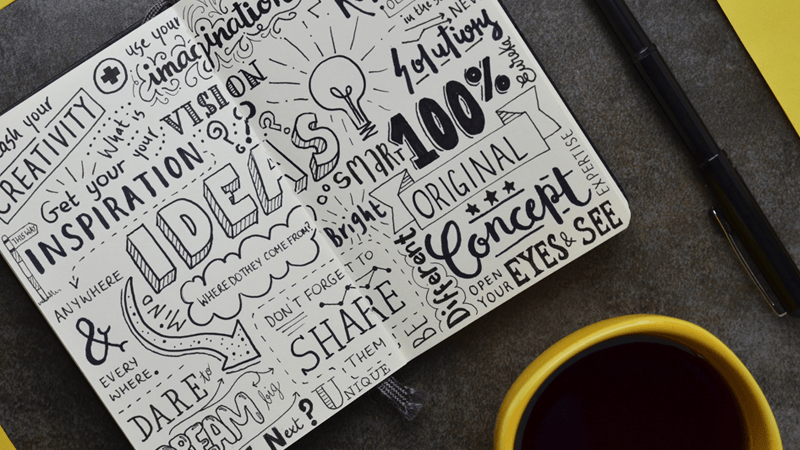 use your
imagination
CREATIVITY
What is
your VISION
??
Get your
INSPIRATION
THIS WAY
ANYWHERE
&
EVERY
WHERE.
IDEAS
MIND
WHERE DO THEY COME FROM?
DON'T FORGET TO
SHARE
THEM
DARE to
DREAM big
Next?
UNIQUE
in the
NEW
Solutions
100%
smart
ORIGINAL
Bright
Concept
EXPERTISE
BE
Different
OPEN
YOUR EYES & SEE